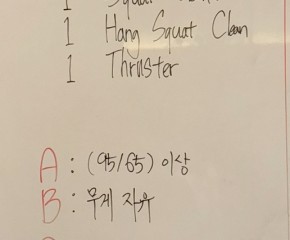 1 Squat
1 Hang Squat Clean
1 Thruster
A : (95/65) 이상
B : 무게 자유